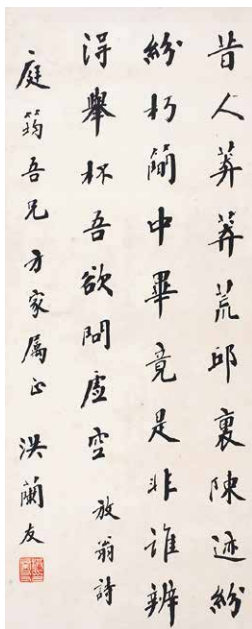 昔人莽莽荒邱裏陳迹紛
紛朽簡中畢竟是非誰辨
得舉杯吾欲問虛空 放翁詩
庭筠吾兄方家属正 洪蘭友